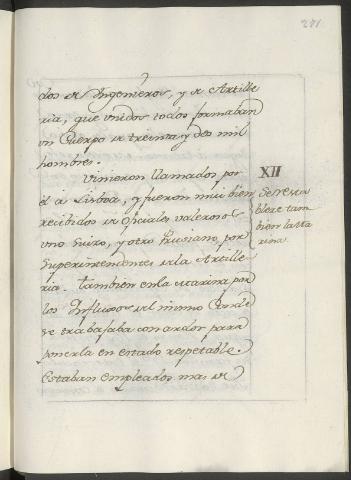 271.
dos de Ingenieros, y de Artille
ria, que unidos todos formaban
un Cuerpo de treinta y dos mil
hombres.
Vinieron llamados por
él a Lisboa, y fueron mui bien
recibidos de oficiales valerosos
uno Suizo, y otro Prusiano, por
Superintendentes de la Artille
ria. tambien en la Marina por
los Influxos del mismo Conde
se trabajaba con ardor para
ponerla en estado respetable.
Estaban empleados mas de
XII
Se resta
blece tam
bien la Ma
rina